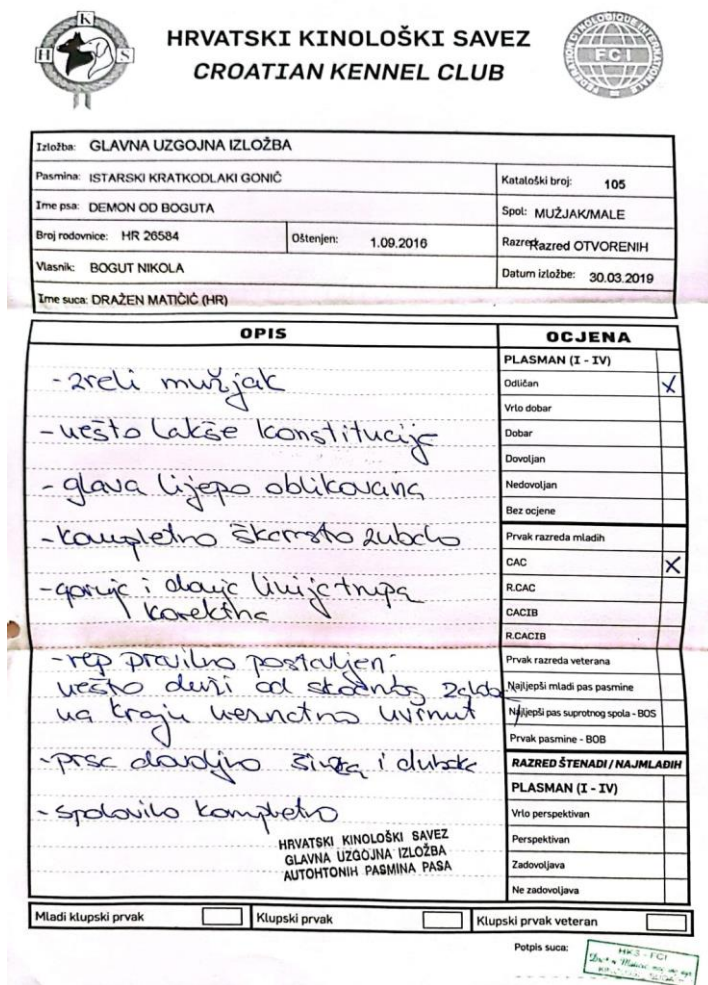 K
H S
HRVATSKI KINOLOŠKI SAVEZ
CROATIAN KENNEL CLUB
FEDERATION CYNOLOGIQUE INTERNATIONALE
FCI
Izložba: GLAVNA UZGOJNA IZLOŽBA
Pasmina: ISTARSKI KRATKODLAKI GONIČ
Kataloški broj: 105
Ime psa: DEMON OD BOGUTA
Spol: MUŽJAK/MALE
Broj rodovnice: HR 26584
Oštenjen: 1.09.2016
Razred: Razred OTVORENIH
Vlasnik: BOGUT NIKOLA
Datum izložbe: 30.03.2019
Ime suca: DRAŽEN MATIČIĆ (HR)
OPIS
- zreli mužjak
- nešto lakše konstitucije
- glava lijepo oblikovana
- kompletno škarasto zubalo
- gornja i donja linija trupa
korektna
- rep pravilno postavljen
nešto duži od skočnog zgloba
na kraju neznatno uvrnut
- prsa dovoljno široka i duboka
- spolovilo kompletno
HRVATSKI KINOLOŠKI SAVEZ
GLAVNA UZGOJNA IZLOŽBA
AUTOHTONIH PASMINA PASA
OCJENA
PLASMAN (I - IV)
Odličan X
Vrlo dobar
Dobar
Dovoljan
Nedovoljan
Bez ocjene
Prvak razreda mladih
CAC X
R.CAC
CACIB
R.CACIB
Prvak razreda veterana
Najljepši mladi pas pasmine
Najljepši pas suprotnog spola - BOS
Prvak pasmine - BOB
RAZRED ŠTENADI / NAJMLAĐIH
PLASMAN (I - IV)
Vrlo perspektivan
Perspektivan
Zadovoljava
Ne zadovoljava
Mladi klupski prvak
Klupski prvak
Klupski prvak veteran
Potpis suca:
HKS - FCI